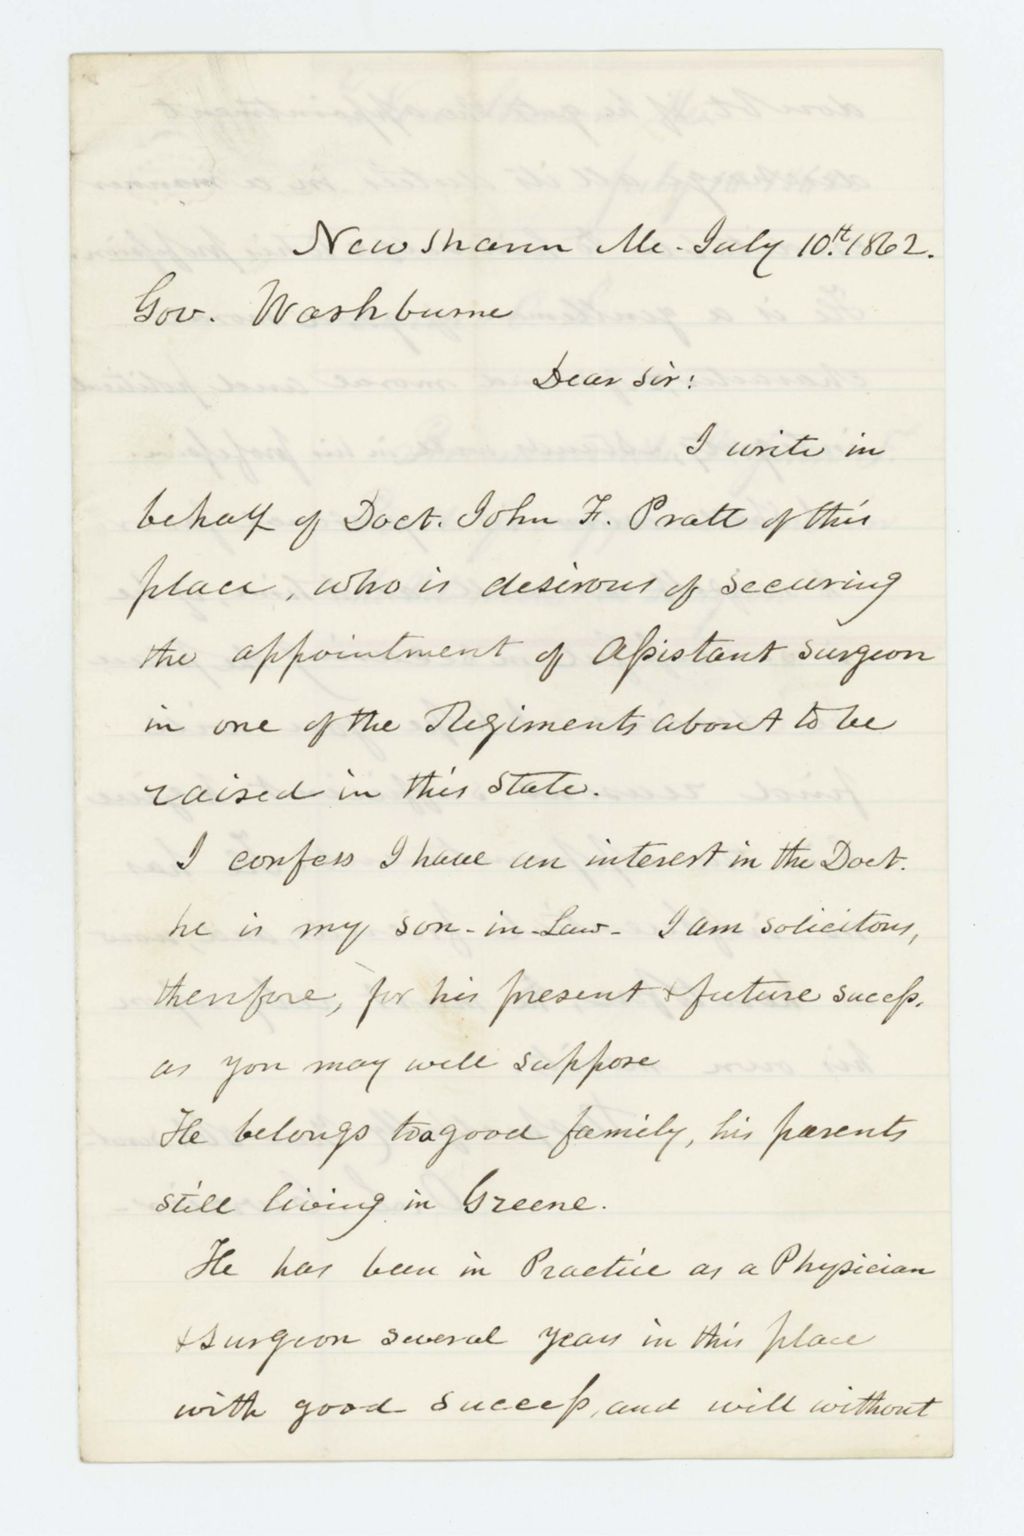 New Sharon Me. July 10th. 1862.
Gov. Washburne
Dear Sir:
I write in
behalf of Doct. John F. Pratt of this
place, who is desirous of securing
the appointment of Assistant Surgeon
in one of the Regiments about to be
raised in this State.
I confess I have an interest in the Doct.
he is my son-in-Law- I am solicitous,
therefore, for his present & future success.
as you may well suppose
He belongs to a good family, his parents
still living in Greene.
He has been in Practice as a Physician
& Surgeon several years in this place
with good success, and will without